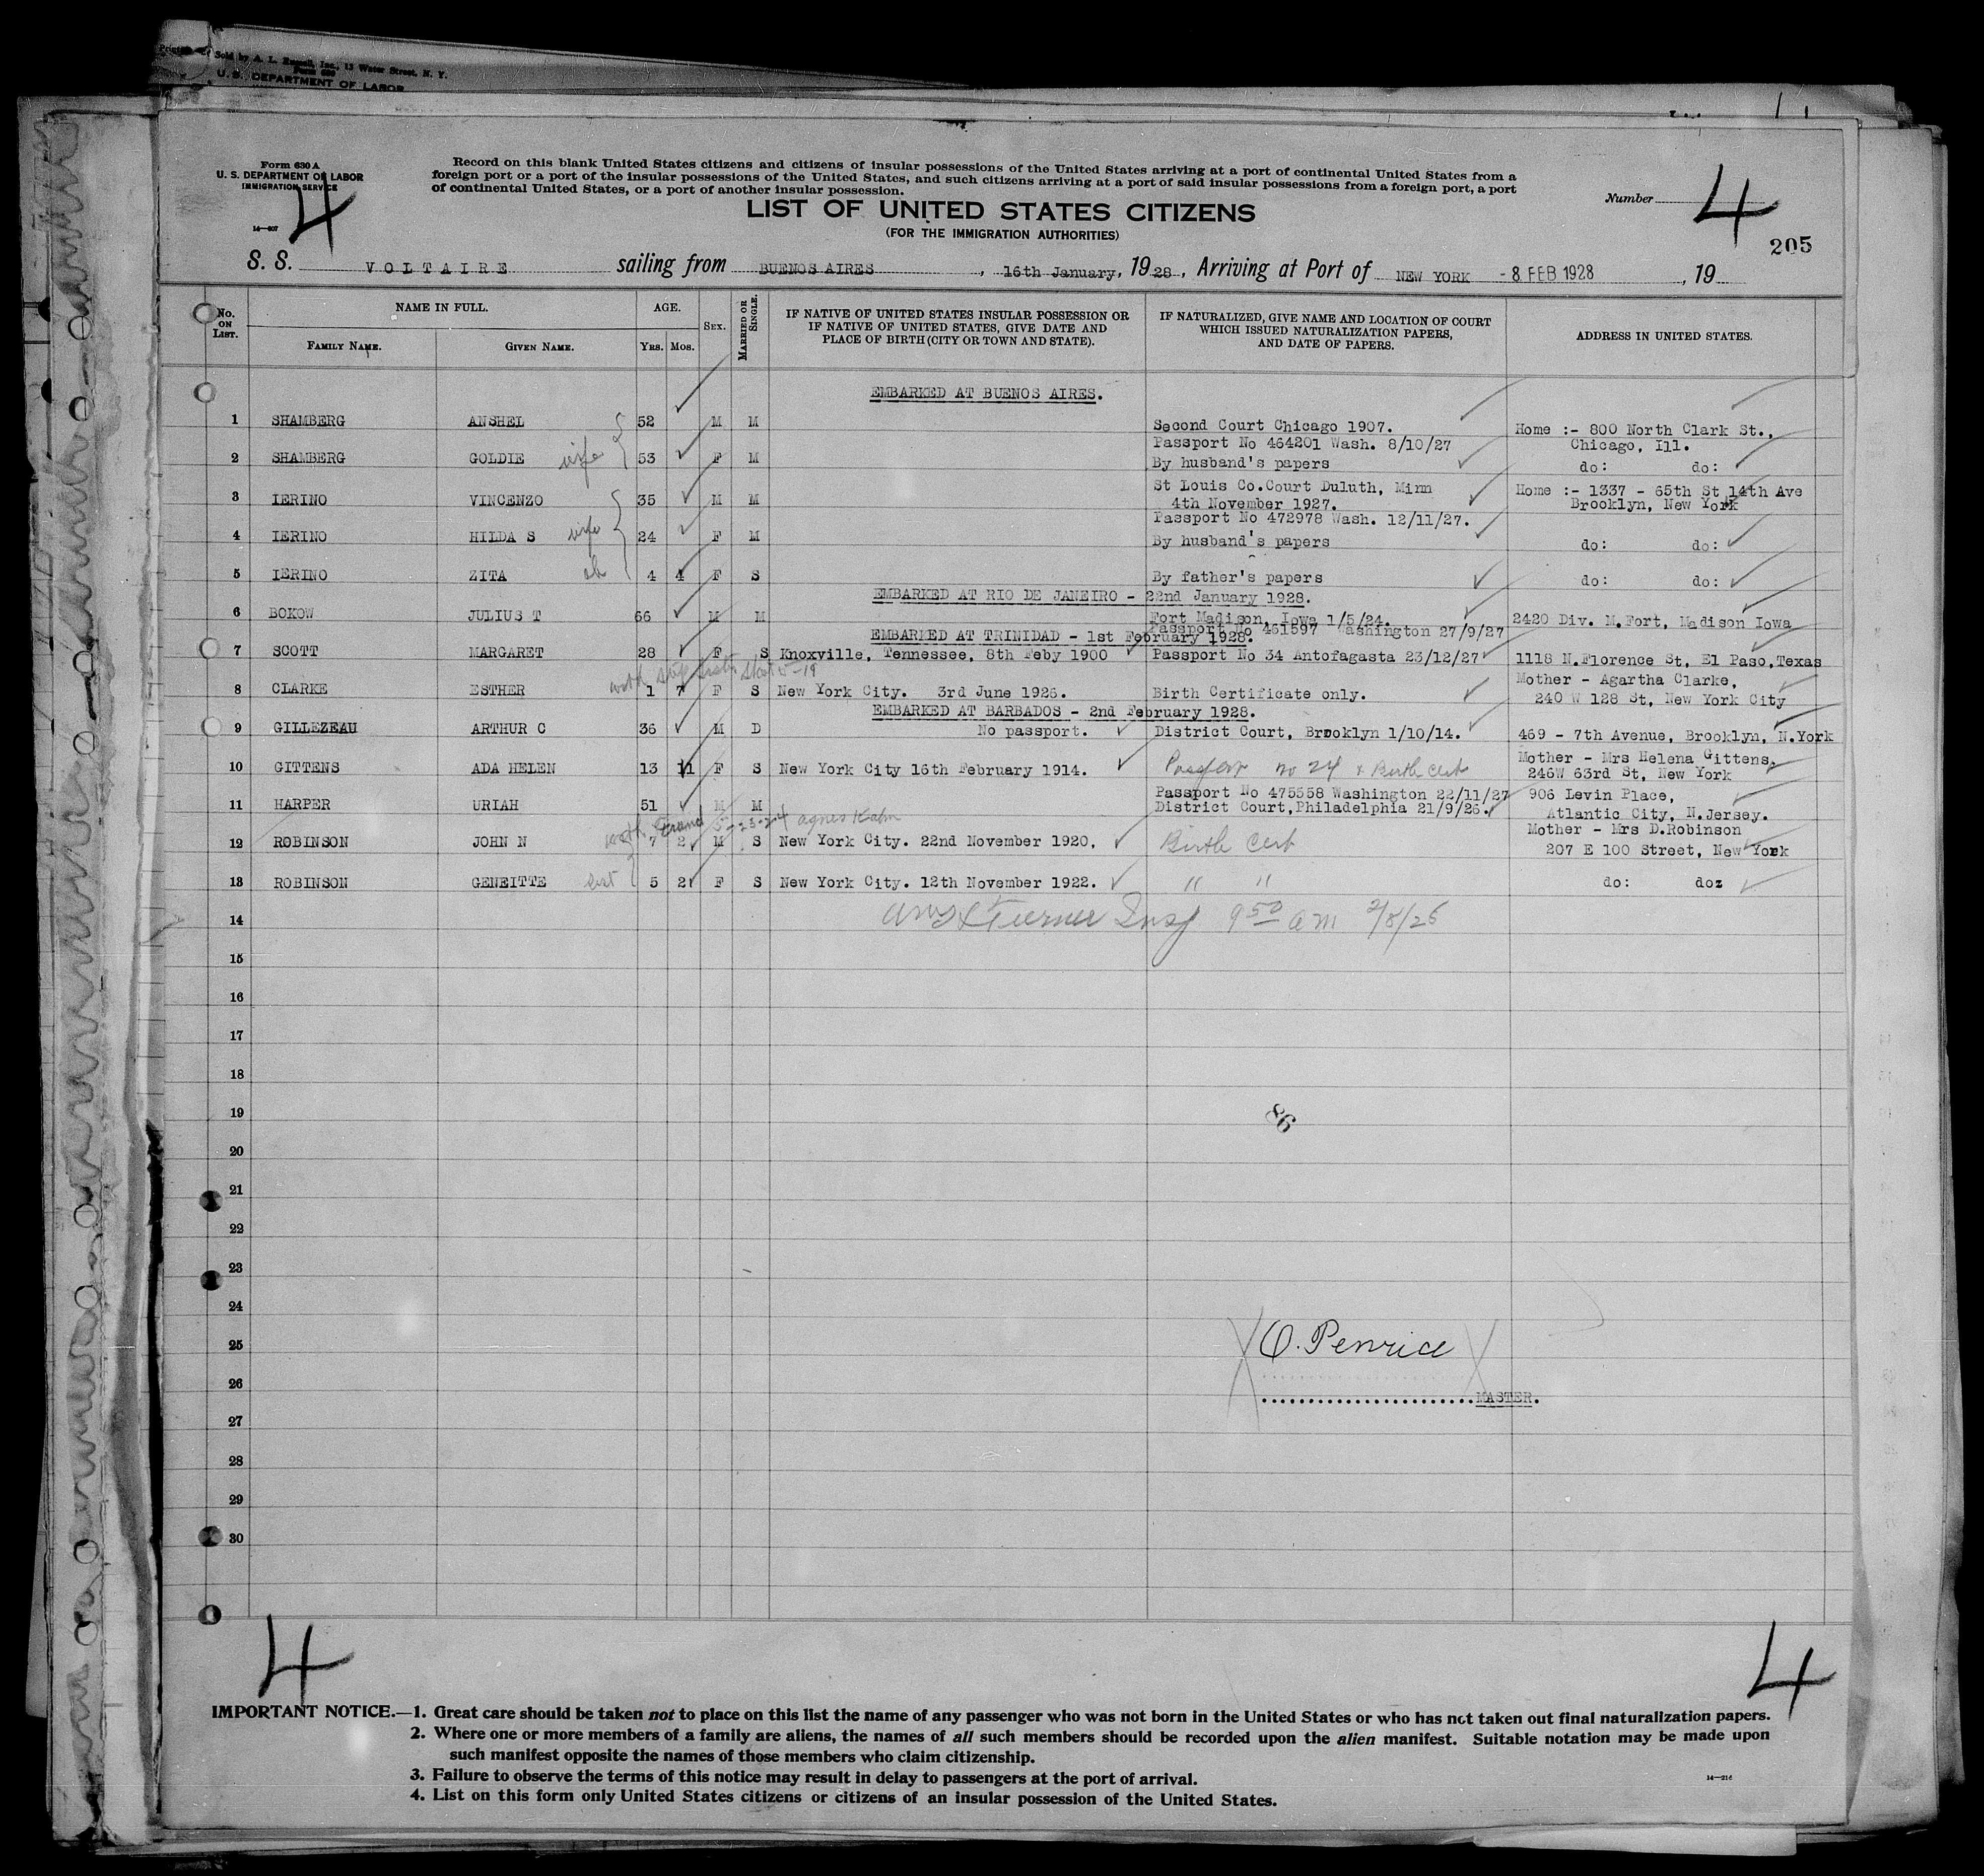 Sold by A. L. Russell, Inc., 13 Water Street, N. Y.
Form 630
U. S. DEPARTMENT OF LABOR
Form 630 A
U. S. DEPARTMENT OF LABOR
IMMIGRATION SERVICE
14—607
4
Record on this blank United States citizens and citizens of insular possessions of the United States arriving at a port of continental United States from a
foreign port or a port of the insular possessions of the United States, and such citizens arriving at a port of said insular possessions from a foreign port, a port
of continental United States, or a port of another insular possession.
LIST OF UNITED STATES CITIZENS
(FOR THE IMMIGRATION AUTHORITIES)
Number 4
205
S. S. VOLTAIRE sailing from BUENOS AIRES, 16th January, 1928, Arriving at Port of NEW YORK - 8 FEB 1928, 19
No. ON LIST. NAME IN FULL. FAMILY NAME. GIVEN NAME. AGE. YRS. MOS. SEX. MARRIED OR SINGLE. IF NATIVE OF UNITED STATES INSULAR POSSESSION OR IF NATIVE OF UNITED STATES, GIVE DATE AND PLACE OF BIRTH (CITY OR TOWN AND STATE). IF NATURALIZED, GIVE NAME AND LOCATION OF COURT WHICH ISSUED NATURALIZATION PAPERS, AND DATE OF PAPERS. ADDRESS IN UNITED STATES.
EMBARKED AT BUENOS AIRES.
1 SHAMBERG ANSHEL 52 M M Second Court Chicago 1907. Home :- 800 North Clark St.,
Passport No 464201 Wash. 8/10/27 Chicago, Ill.
2 SHAMBERG GOLDIE wife 53 F M By husband's papers do: do:
3 IERINO VINCENZO 35 M M St Louis Co.Court Duluth, Minn Home :- 1337 - 65th St 14th Ave
4th November 1927. Brooklyn, New York
Passport No 472978 Wash. 12/11/27.
4 IERINO HILDA S wife 24 F M By husband's papers do: do:
5 IERINO ZITA ch 4 4 F S By father's papers do: do:
EMBARKED AT RIO DE JANEIRO - 22nd January 1928.
6 BOKOW JULIUS T 66 M M Fort Madison, Iowa 1/5/24. 2420 Div. M.Fort, Madison Iowa
Passport No 461597 Washington 27/9/27
EMBARKED AT TRINIDAD - 1st February 1928.
7 SCOTT MARGARET 28 F S Knoxville, Tennessee, 8th Feby 1900 Passport No 34 Antofagasta 23/12/27 1118 N.Florence St, El Paso, Texas
with step sister 5-19
8 CLARKE ESTHER 1 7 F S New York City. 3rd June 1926. Birth Certificate only. Mother - Agartha Clarke,
240 W 128 St, New York City
EMBARKED AT BARBADOS - 2nd February 1928.
9 GILLEZEAU ARTHUR C 36 M D No passport. District Court, Brooklyn 1/10/14. 469 - 7th Avenue, Brooklyn, N.York
10 GITTENS ADA HELEN 13 11 F S New York City 16th February 1914. Passport no 24 & Birth Cert Mother - Mrs Helena Gittens,
246W 63rd St, New York
11 HARPER URIAH 51 M M Passport No 475558 Washington 22/11/27 906 Levin Place,
District Court, Philadelphia 21/9/26. Atlantic City, N.Jersey.
with 5-23-24 agnes
12 ROBINSON JOHN N 7 2 M S New York City. 22nd November 1920. Birth Cert Mother - Mrs D.Robinson
207 E 100 Street, New York
13 ROBINSON GENEITTE sist 5 2 F S New York City. 12th November 1922. " " do: do:
14 Turner Insp 9 50 am 2/8/28
15
16
17
18
19
86
20
21
22
23
24
25 O. Penrice
26 MASTER.
27
28
29
30
4 4
IMPORTANT NOTICE.—1. Great care should be taken not to place on this list the name of any passenger who was not born in the United States or who has not taken out final naturalization papers.
2. Where one or more members of a family are aliens, the names of all such members should be recorded upon the alien manifest. Suitable notation may be made upon
such manifest opposite the names of those members who claim citizenship.
3. Failure to observe the terms of this notice may result in delay to passengers at the port of arrival.
4. List on this form only United States citizens or citizens of an insular possession of the United States.
14—216